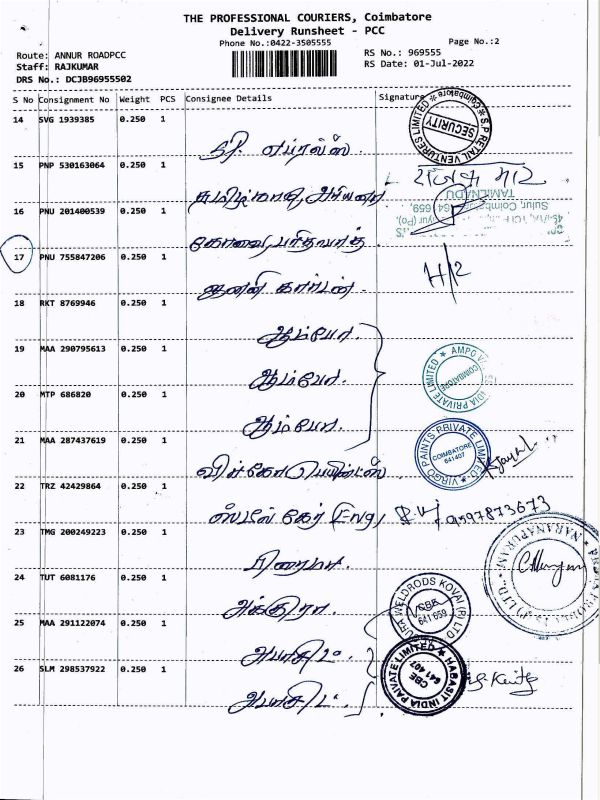 THE PROFESSIONAL COURIERS, Coimbatore
Delivery Runsheet - PCC
Phone No.:0422-3505555
Page No.:2
Route: ANNUR ROADPCC
RS No.: 969555
Staff: RAJKUMAR
RS Date: 01-Jul-2022
DRS No.: DCJB96955502
S No Consignment No Weight PCS Consignee Details Signature
14 SVG 1939385 0.250 1
S.P RETAIL VENTURES LIMITED
Coimbatore
SECURITY
15 PNP 530163064 0.250 1
TAMILNADU
16 PNU 201400539 0.250 1
கோவை பாரிவார்
17 PNU 755847206 0.250 1
H/2
ஜனனி கார்டன்
18 RKT 8769946 0.250 1
ஆம்போ.
19 MAA 290795613 0.250 1
ஆம்போ.
AMPO
INDIA PRIVATE LIMITED
COIMBATORE
20 MTP 686820 0.250 1
ஆம்போ.
21 MAA 287437619 0.250 1
விர்கோ பெயிண்ட்ஸ்
VIRGO PAINTS PRIVATE LIMITED
COIMBATORE
641407
22 TRZ 42429864 0.250 1
ஸ்டீல் கேர் Eng
9597873673
23 TMG 200249223 0.250 1
NARANAPURAM
24 TUT 6081176 0.250 1
WELDRODS KOVAI (P) LTD
CBE
641 659
25 MAA 291122074 0.250 1
அபாசிட்
HABASIT INDIA PAIVATE LIMITED
CBE
641 407
26 SLM 298537922 0.250 1
அபாசிட்